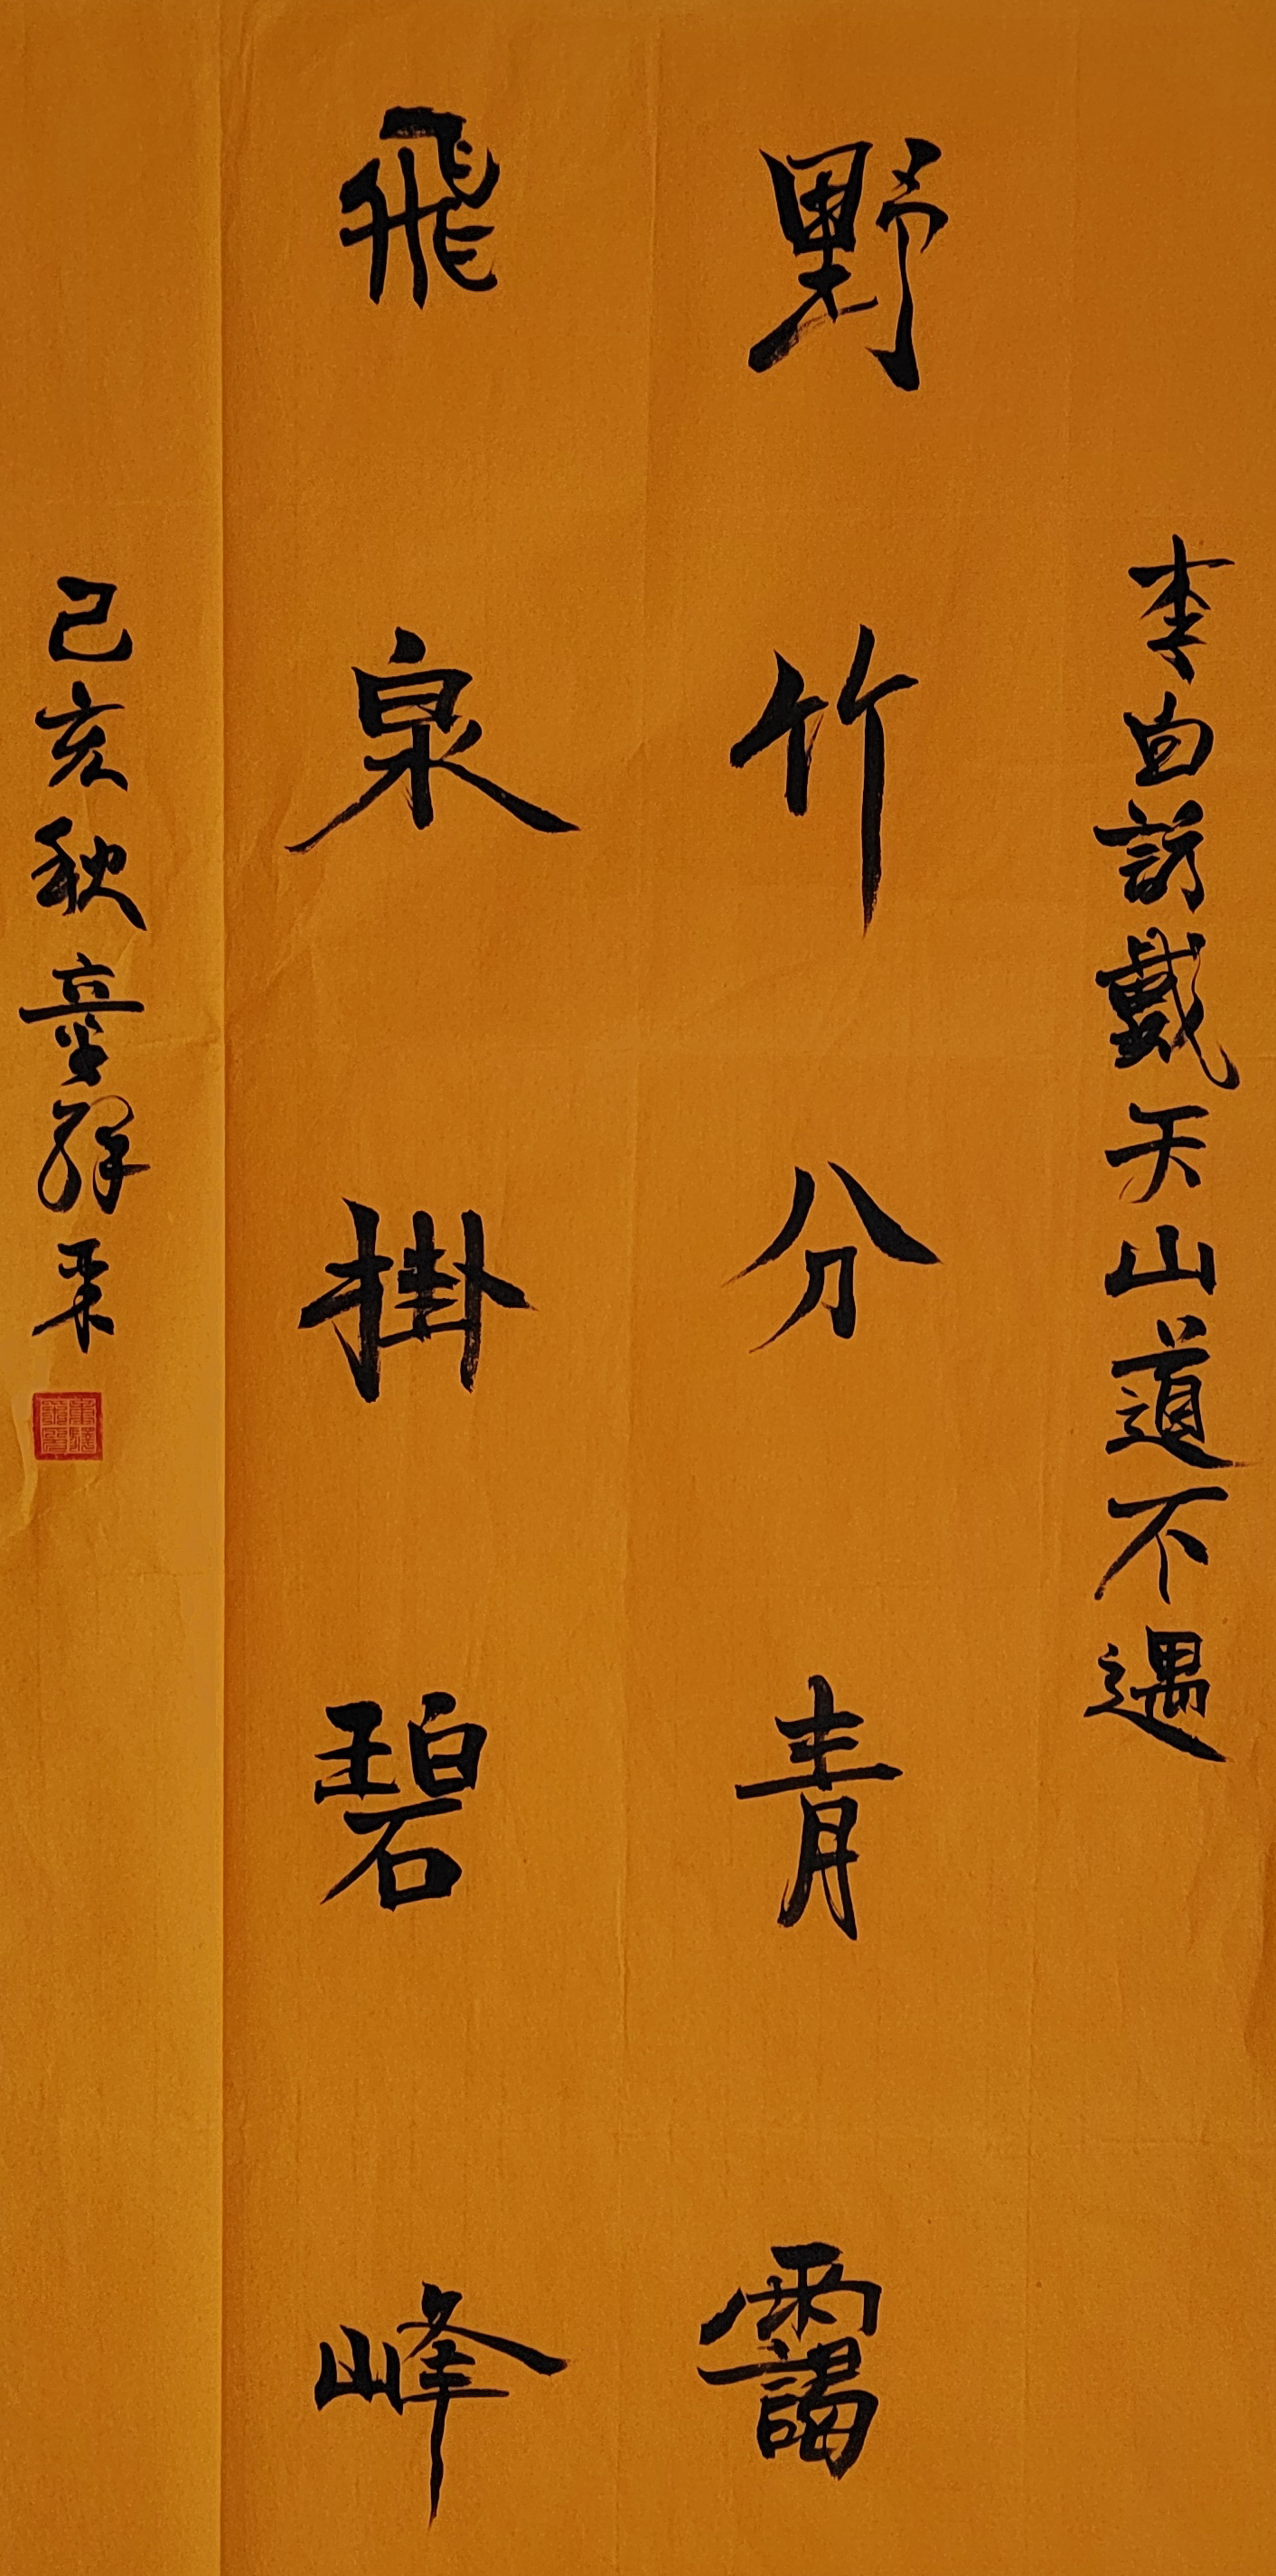 李白訪戴天山道不遇
野竹分青靄
飛泉掛碧峰
己亥秋